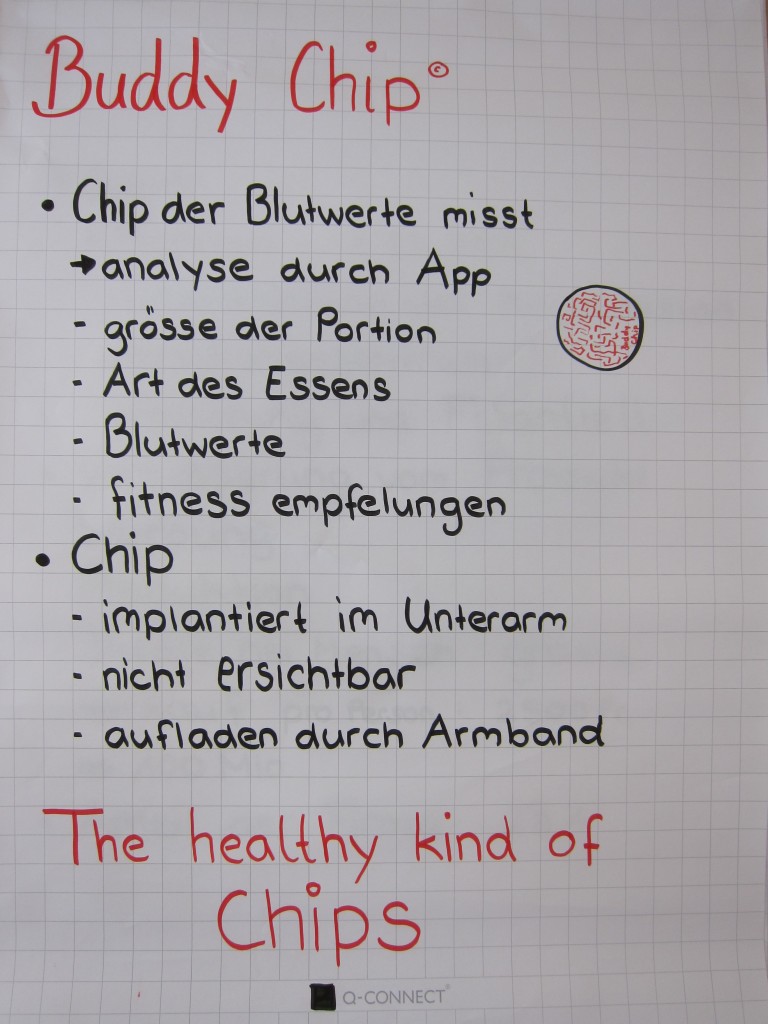 Buddy Chip©
• Chip der Blutwerte misst
→ analyse durch App
- grösse der Portion
- Art des Essens
- Blutwerte
- fitness empfelungen
Buddy Chip
• Chip
- implantiert im Unterarm
- nicht ersichtbar
- aufladen durch Armband
The healthy kind of
Chips
Q-CONNECT®